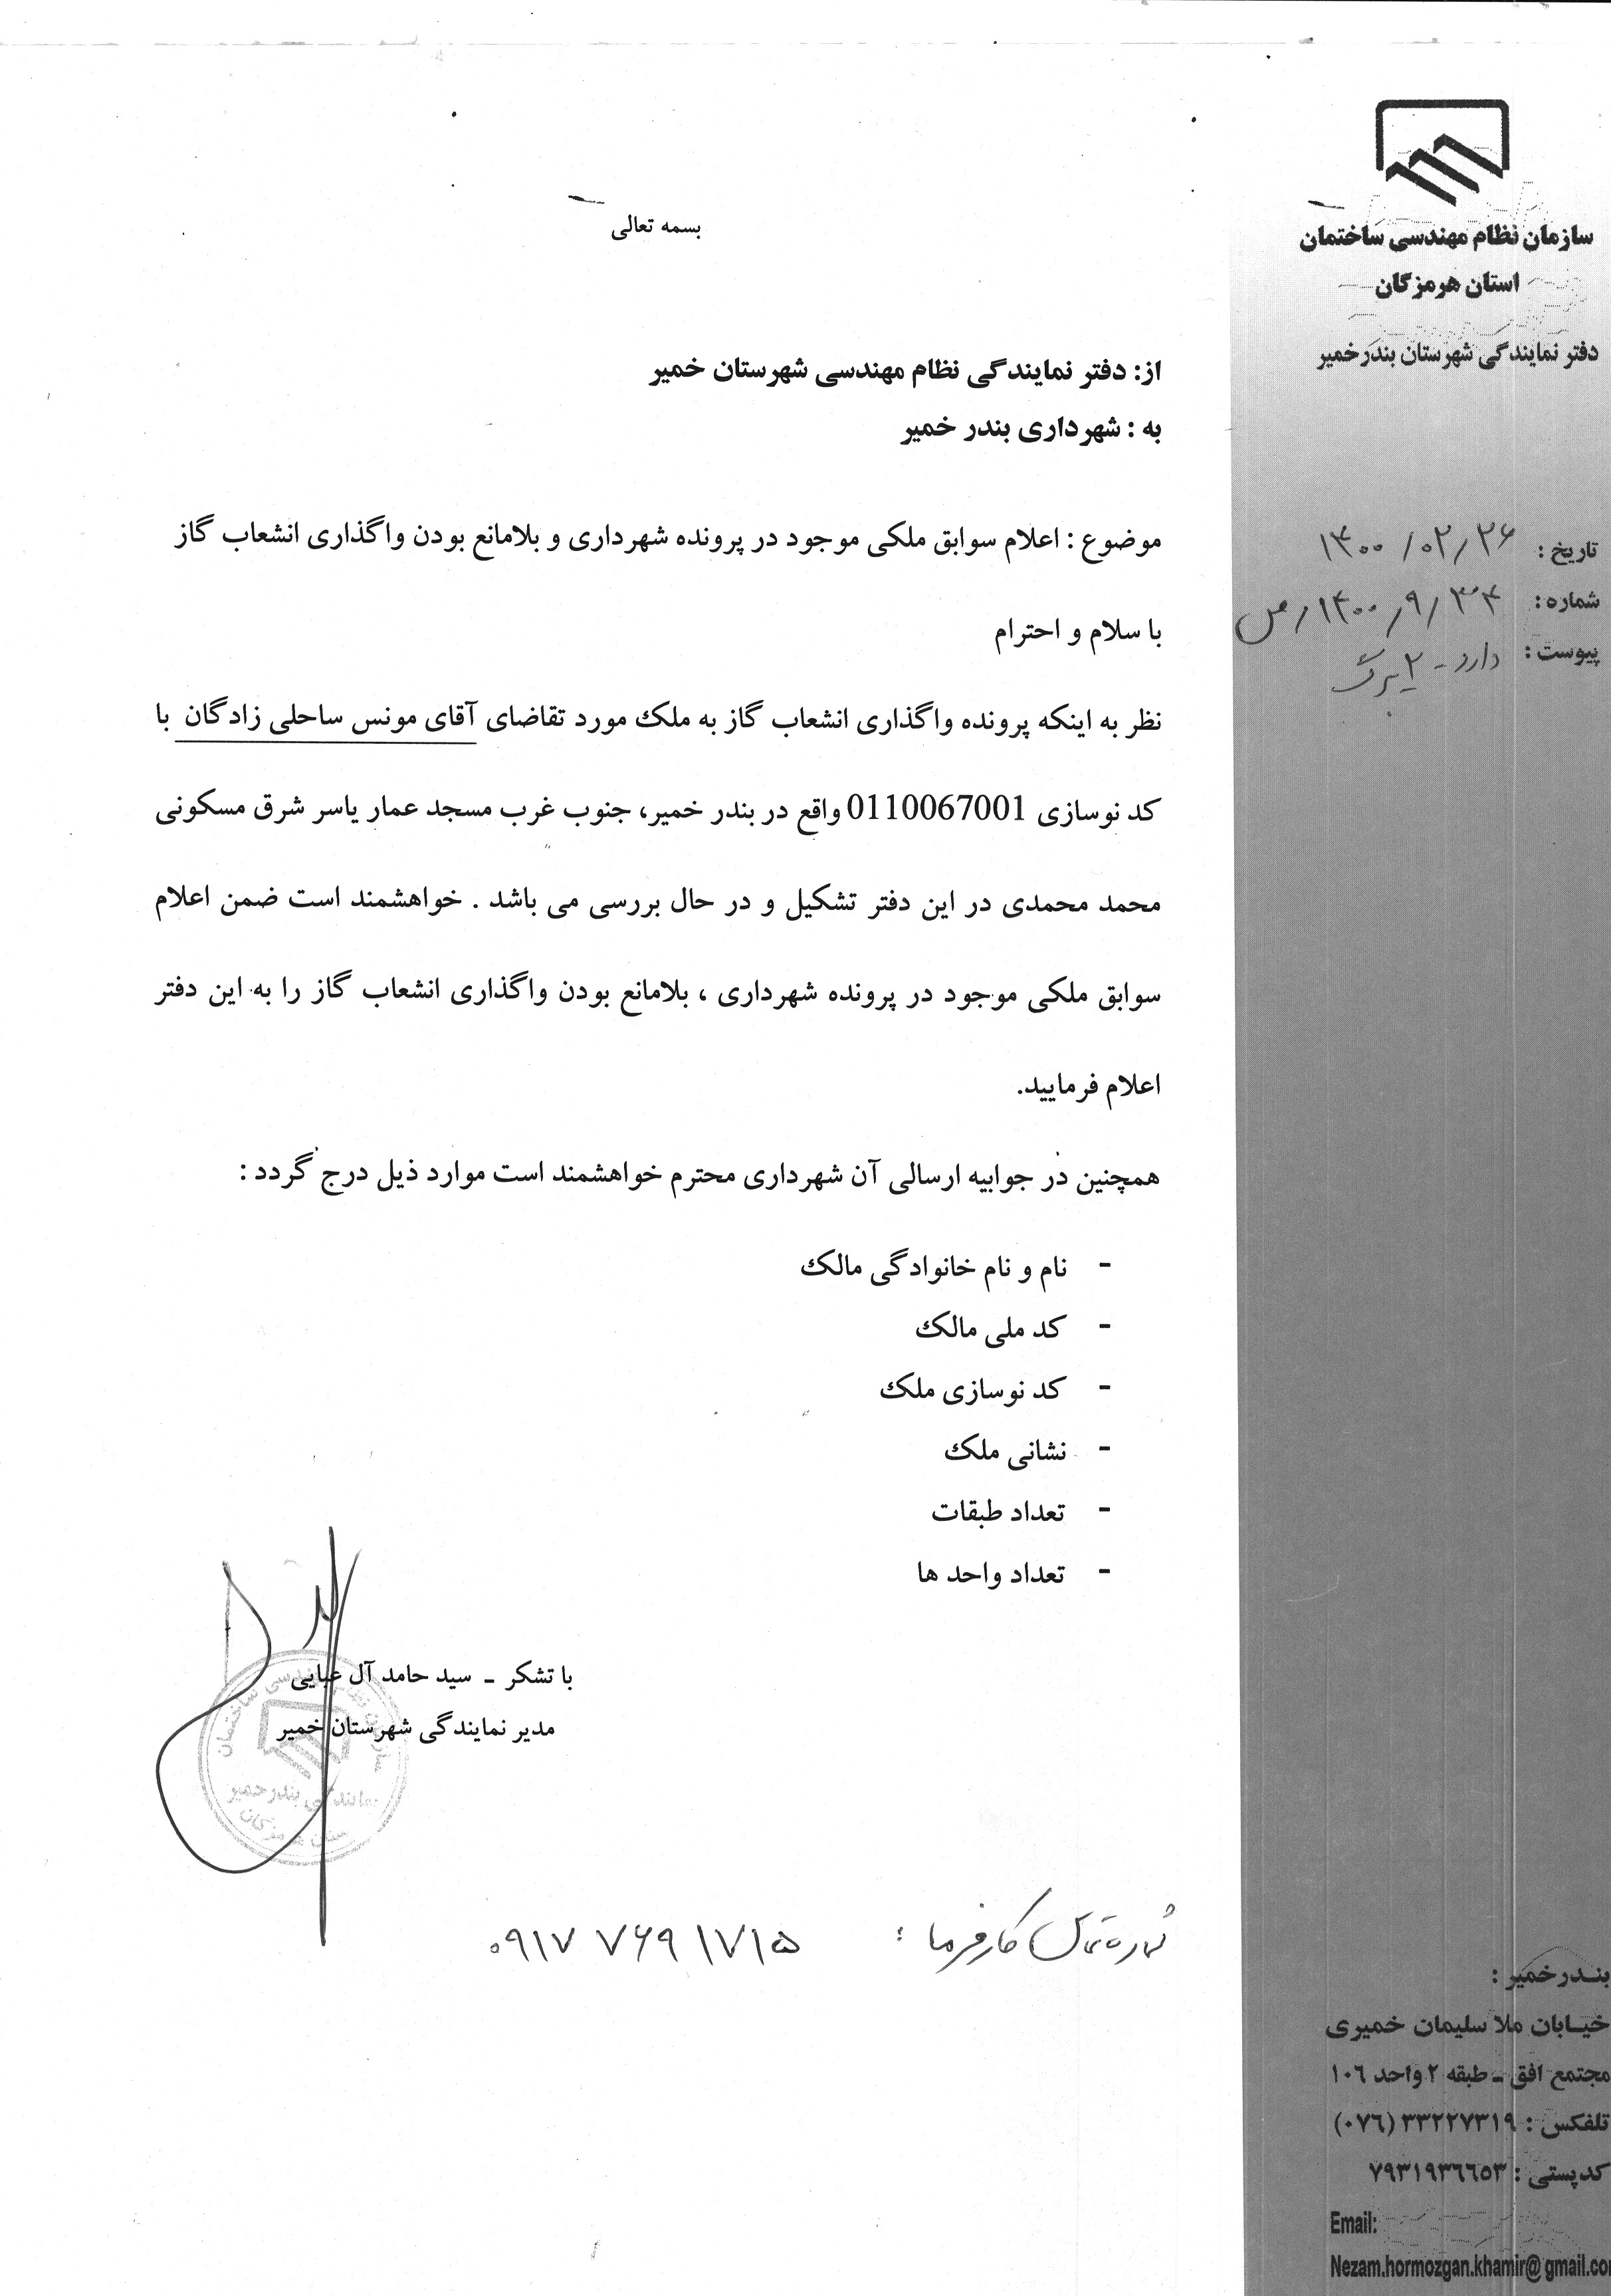 سازمان نظام مهندسی ساختمان
استان هرمزگان
دفتر نمایندگی شهرستان بندرخمیر
تاریخ : ۱۴۰۰/۰۲/۲۶
شماره : ۳۴/۹/۱۴۰۰/ص
پیوست : دارد - ۲ برگ
بسمه تعالی
از: دفتر نمایندگی نظام مهندسی شهرستان خمیر
به : شهرداری بندر خمیر
موضوع : اعلام سوابق ملکی موجود در پرونده شهرداری و بلامانع بودن واگذاری انشعاب گاز
با سلام و احترام
نظر به اینکه پرونده واگذاری انشعاب گاز به ملک مورد تقاضای آقای مونس ساحلی زادگان با
کد نوسازی 0110067001 واقع در بندر خمیر، جنوب غرب مسجد عمار یاسر شرق مسکونی
محمد محمدی در این دفتر تشکیل و در حال بررسی می باشد . خواهشمند است ضمن اعلام
سوابق ملکی موجود در پرونده شهرداری ، بلامانع بودن واگذاری انشعاب گاز را به این دفتر
اعلام فرمایید.
همچنین در جوابیه ارسالی آن شهرداری محترم خواهشمند است موارد ذیل درج گردد :
- نام و نام خانوادگی مالک
- کد ملی مالک
- کد نوسازی ملک
- نشانی ملک
- تعداد طبقات
- تعداد واحد ها
با تشکر ـ سید حامد آل عبایی
مدیر نمایندگی شهرستان خمیر
نمایندگی بندرخمیر
شماره تماس کارفرما : ۰۹۱۷ ۷۶۹ ۱۷۱۵
بنـدرخمیر :
خیـابان ملا سلیمان خمیری
مجتمع افق ـ طبقه ۲ واحد ۱۰۶
تلفکس : ۳۳۲۲۷۳۱۹ (۰۷۶)
کدپستی : ۷۹۳۱۹۳۶۶۵۳
Email:
Nezam.hormozgan.khamir@gmail.co